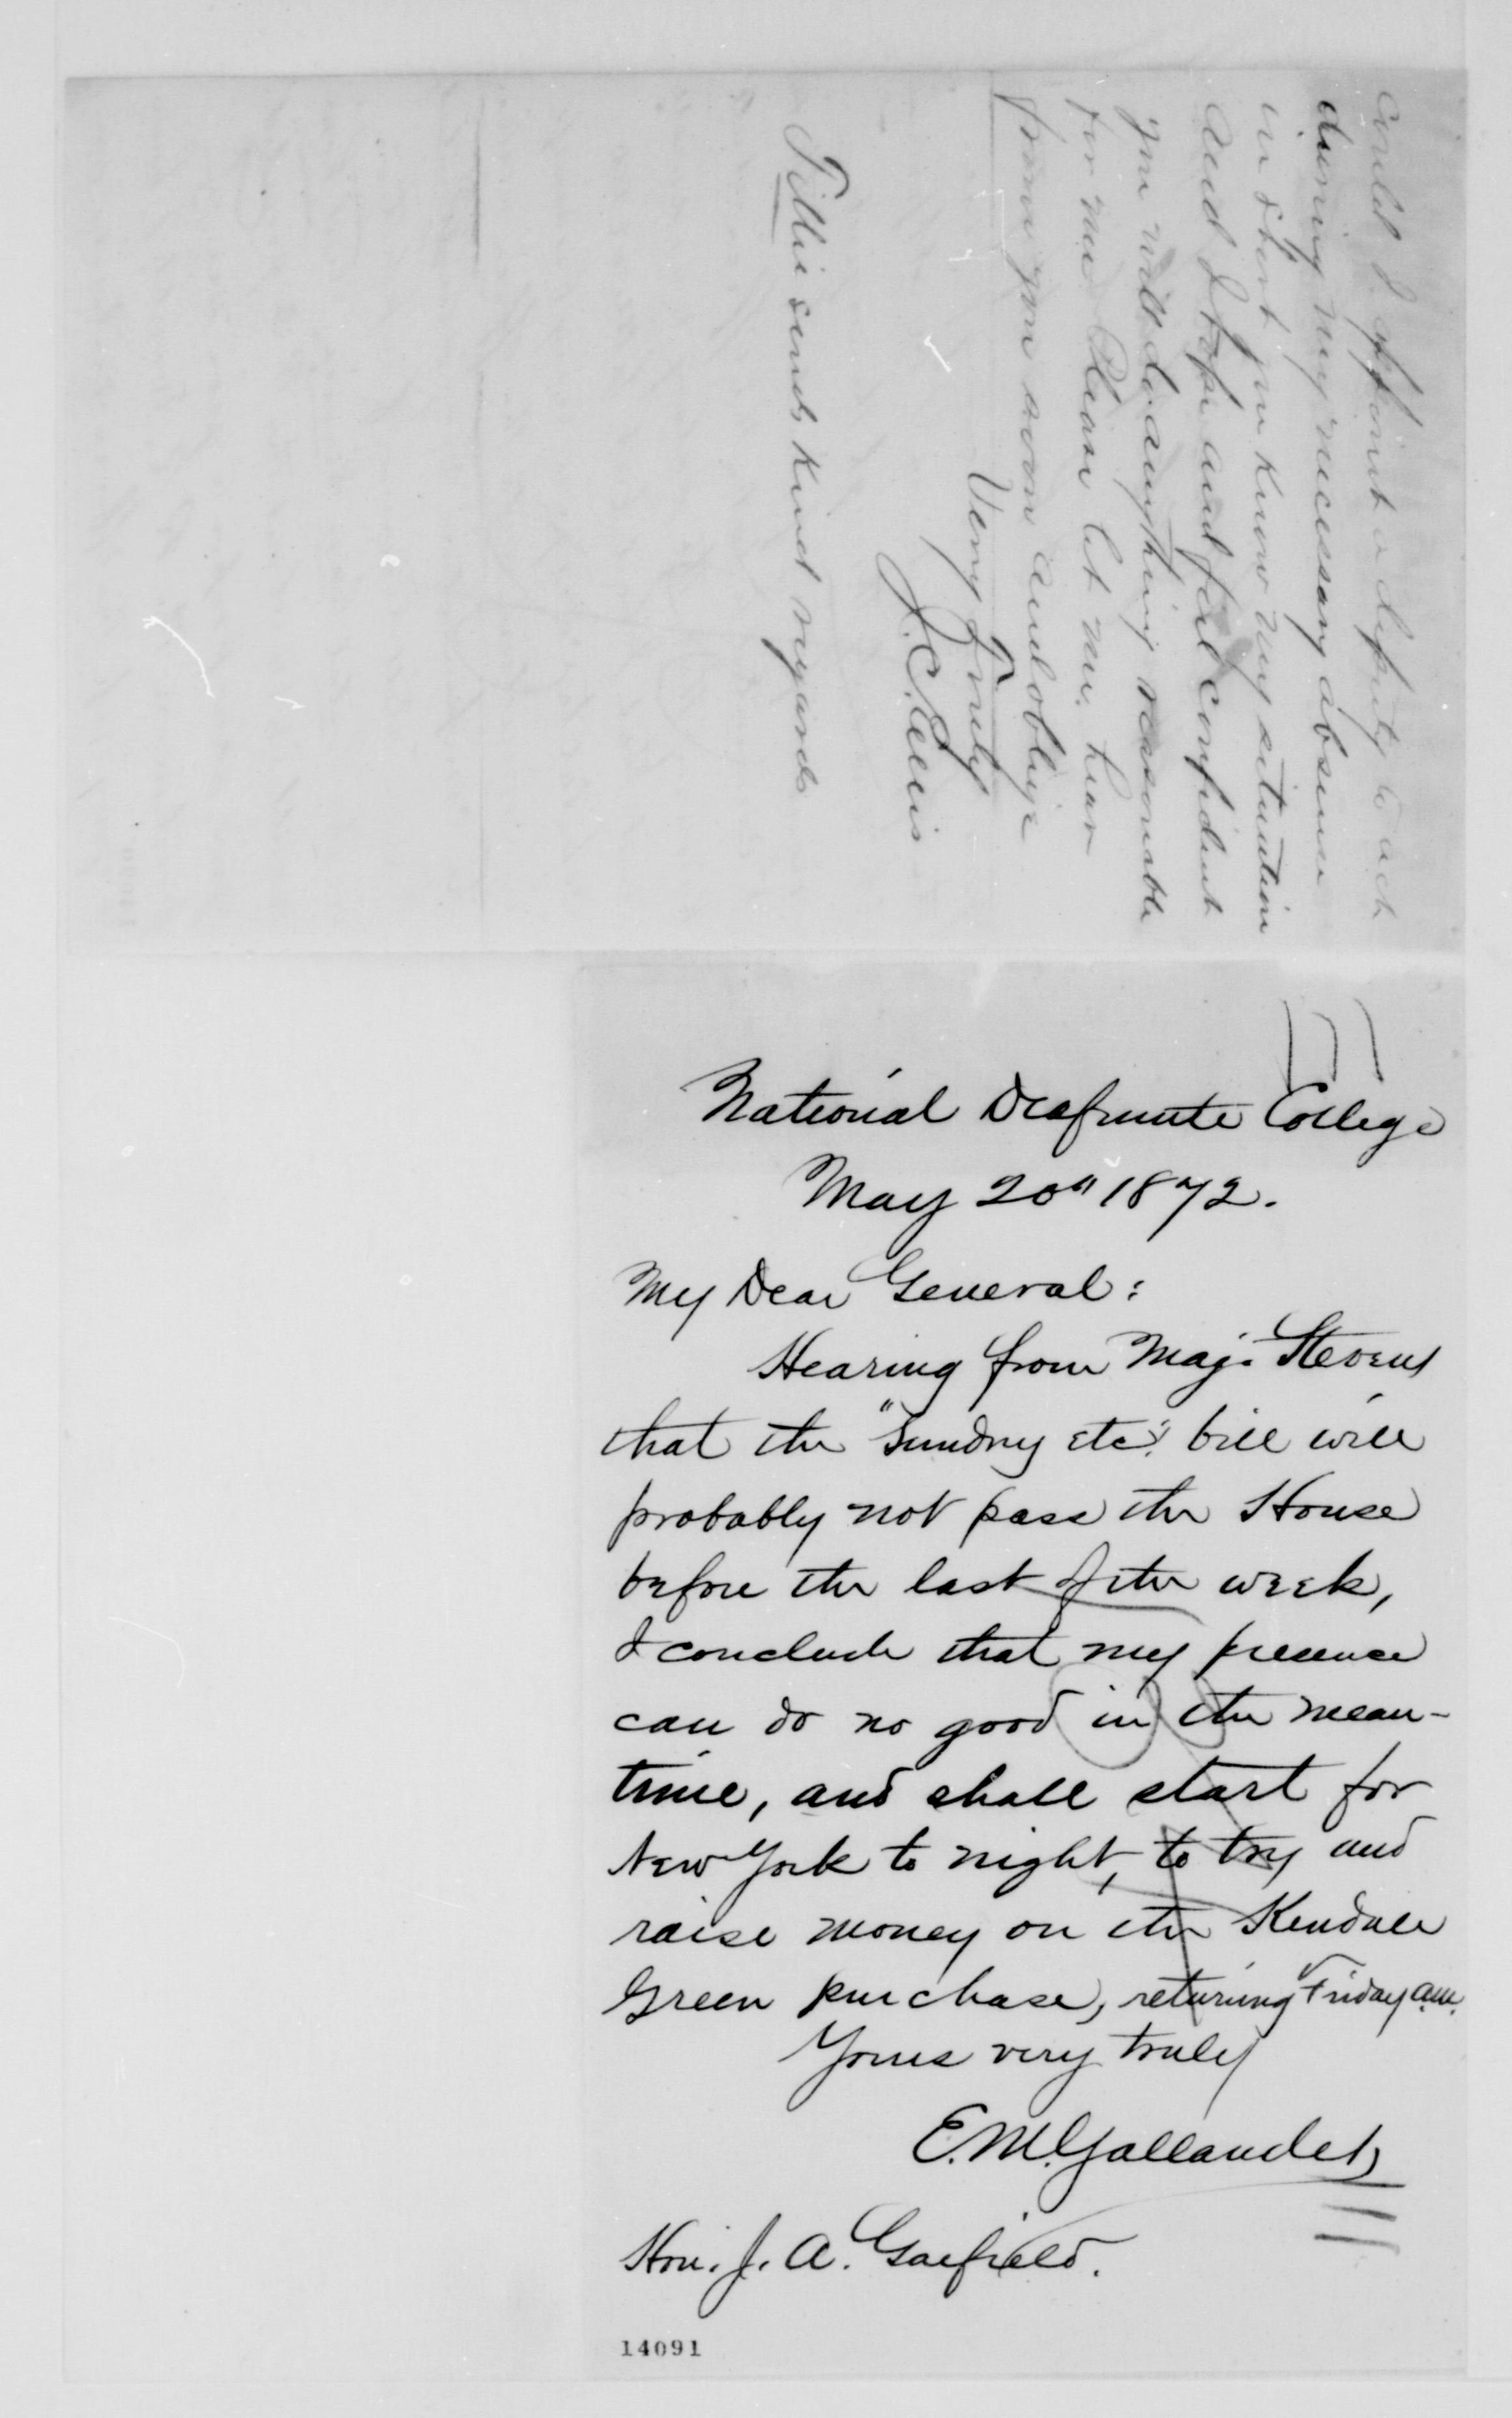 could I appoint a deputy to act
during my necessary absence
in short you know my situation
and I hope and feel confident
you will do anything reasonable
for me Please let me. hear
from you soon and oblige
Very Truly
J. C.
Tillie sends kind regards
National Deafmute College
May 20" 1872.
My Dear General:
Hearing from Maj. Stevens
that the "Sundry etc." bill will
probably not pass the House
before the last of the week,
I conclude that my presence
can do no good in the mean-
time, and shall start for
New York to night, to try and
raise money on the Kendall
Green purchase, returning Friday a.m.
Yours very truly
E. M. Gallaudet
Hon. J. A. Garfield.
14091